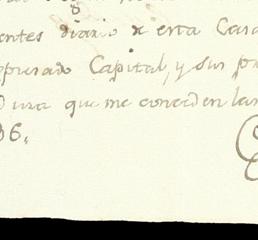 entes diario de esta Casa
opresado Capital, y sus pr
que me conceden las
96,